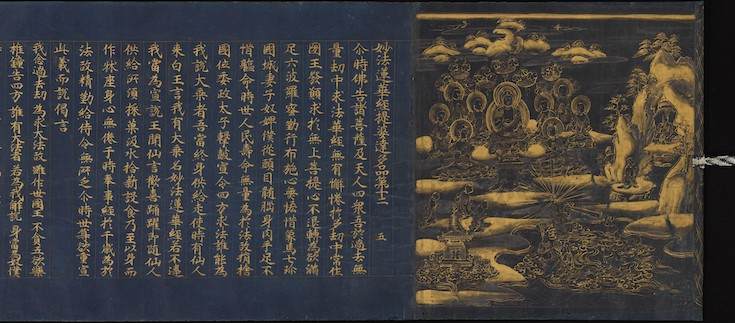 妙法蓮華經提婆達多品第十二 五
尒時佛告諸菩薩及天人四衆吾於過去無
量劫中求法華經無有懈惓於多劫中常作
國王發願求於無上菩提心不退轉為欲滿
足六波羅蜜勤行布施心無悋惜象馬七珎
國城妻子奴婢僕從頭目髓腦身肉手足不
惜軀命時世人民壽命無量為於法故捐捨
國位委政太子擊鼓宣令四方求法誰能為
我說大乘者吾當終身供給走使時有仙人
來白王言我有大乘名妙法蓮華經若不違
我當為宣說王聞仙言歡喜踊躍即隨仙人
供給所須採菓汲水拾薪設食乃至以身而
作牀座身心無惓于時奉事經於千歲為於
法故精勤給侍令無所乏尒時世尊欲重宣
此義而說偈言
我念過去劫 為求大法故 雖作世國王 不貪五欲樂
椎鍾告四方 誰有大法者 若為我解說 身當為奴僕